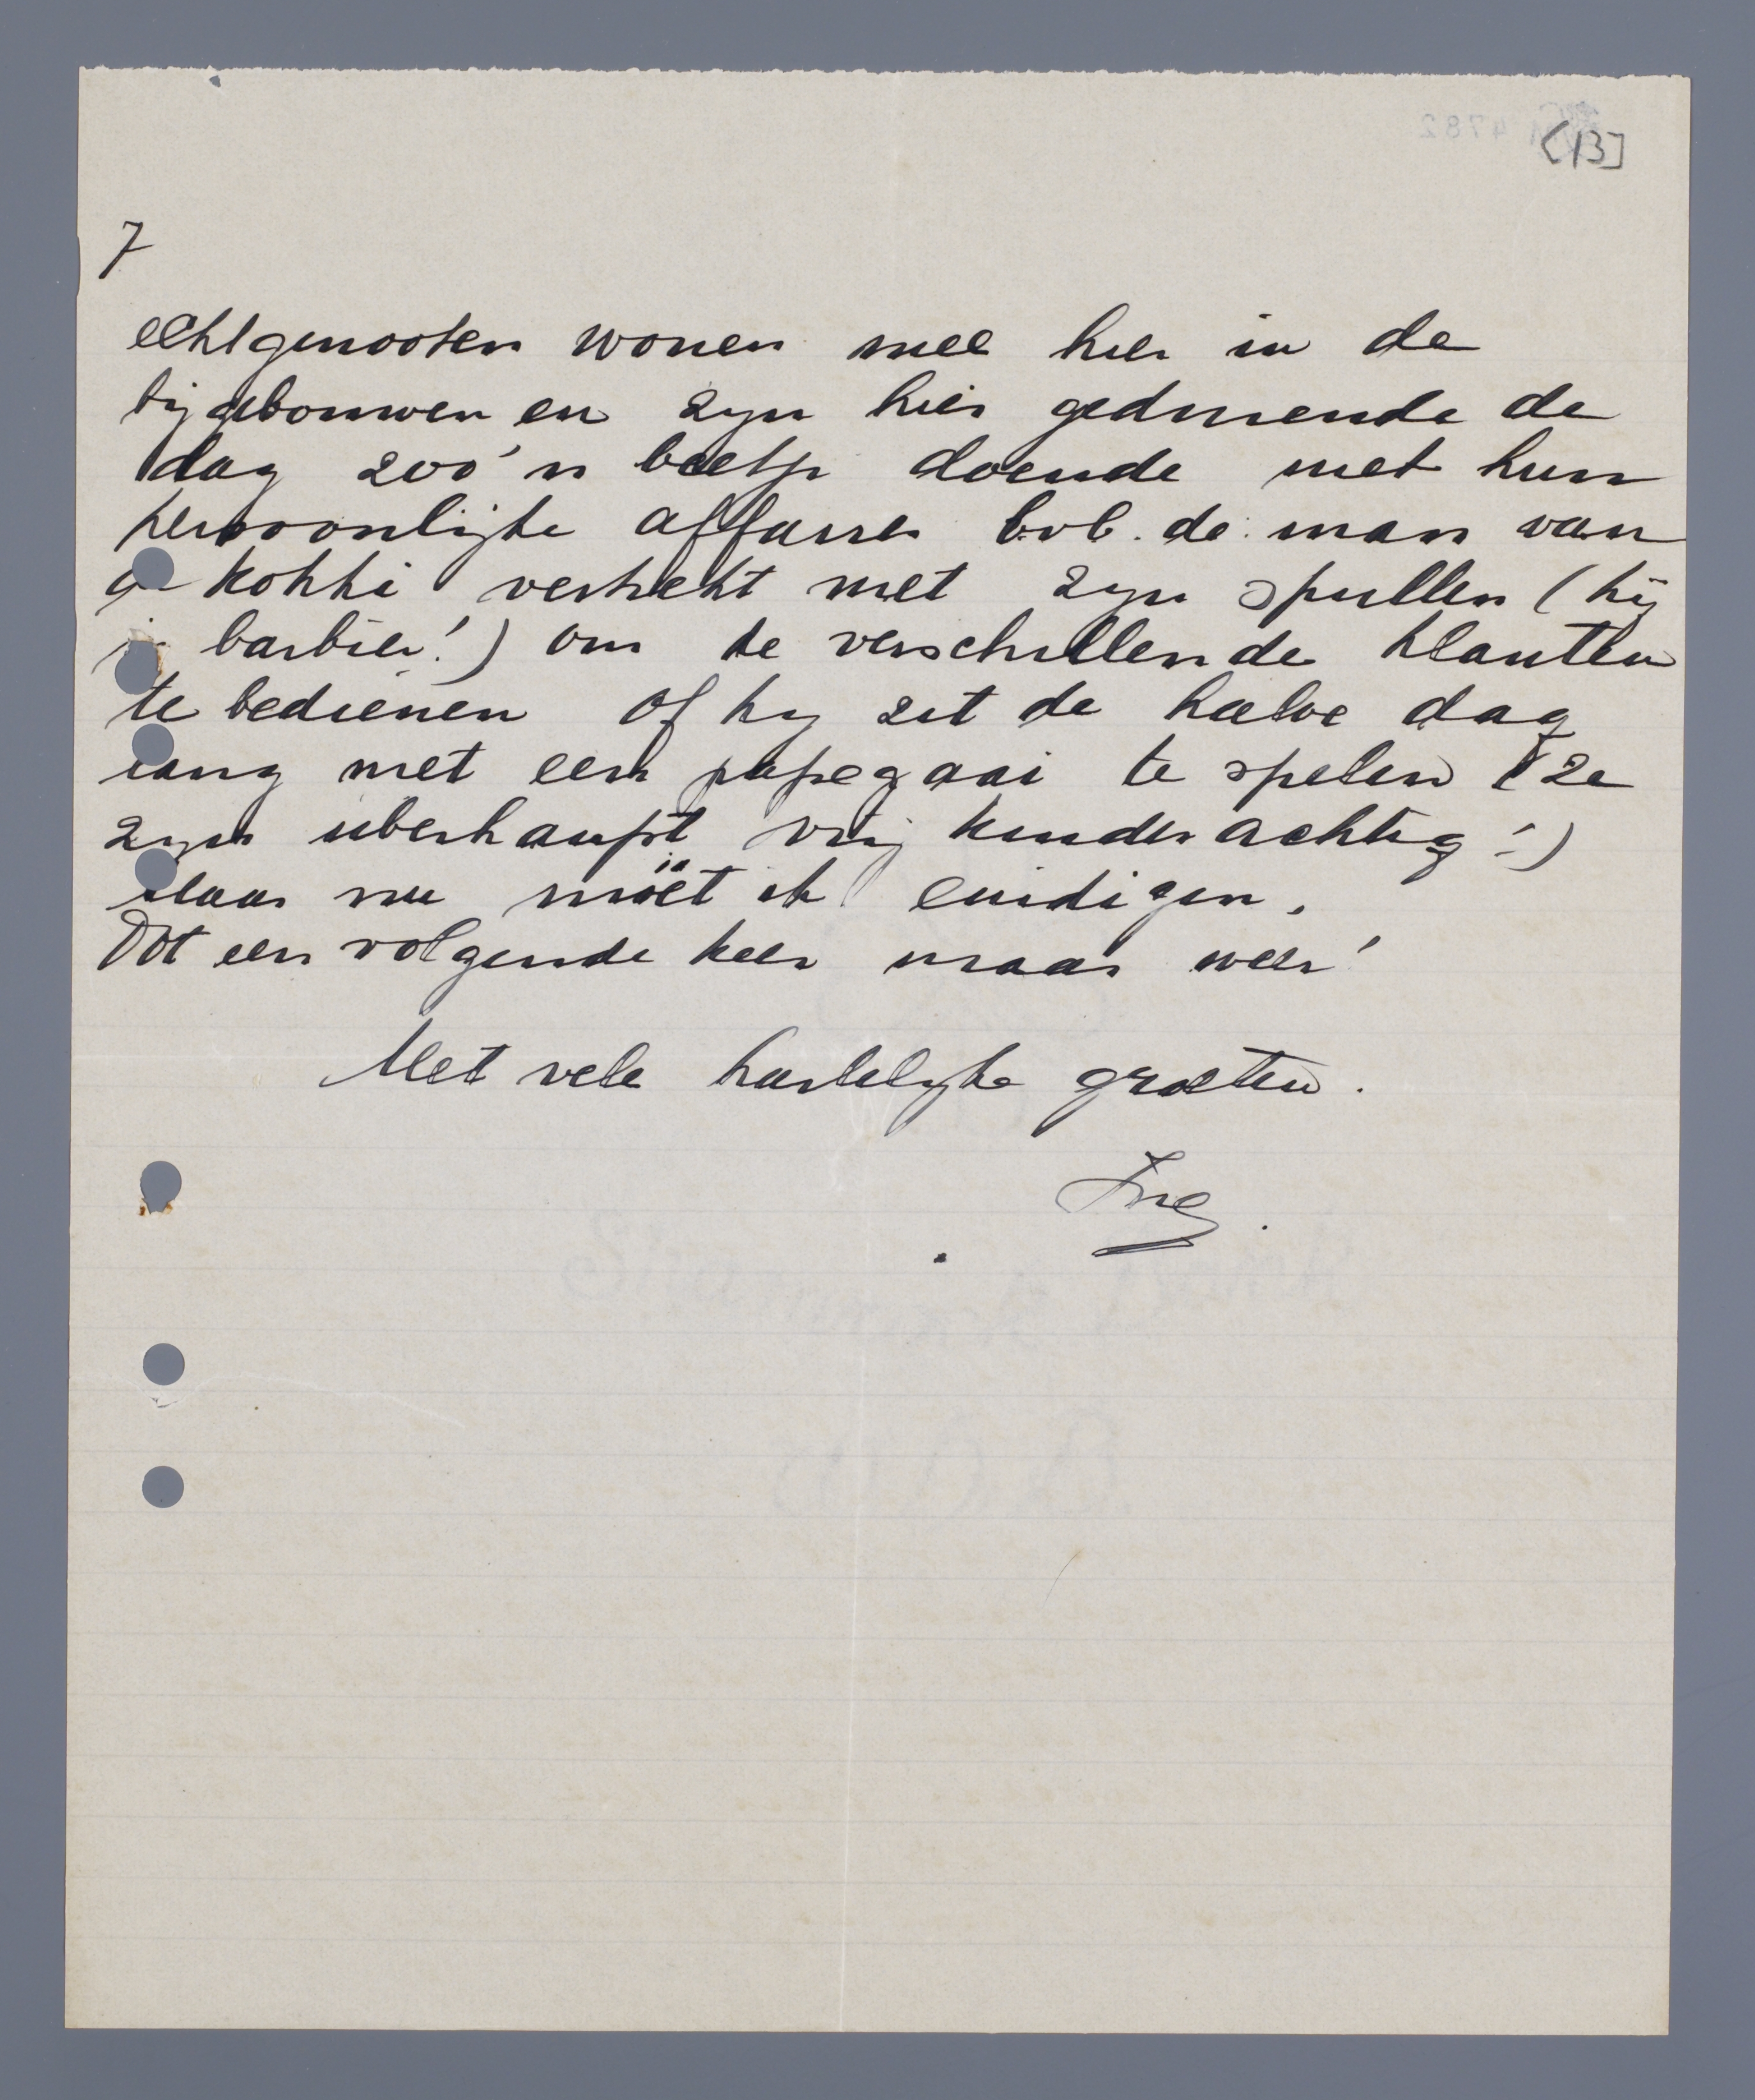 [13]
7
echtgenooten wonen mee hier in de
bijgebouwen en zijn hier gedurende de
dag zoo'n beetje doende met hun
persoonlijke affaires bvb. de man van
de kokki vertrekt met zijn spullen (hij
is barbier!) om de verschillende klanten
te bedienen of hij zit de halve dag
lang met een papegaai te spelen (ze
zijn überhaupt vrij kinderachtig!)
Maar nu möet ik eindigen.
Tot een volgende keer maar weer!
Met vele hartelijke groeten.